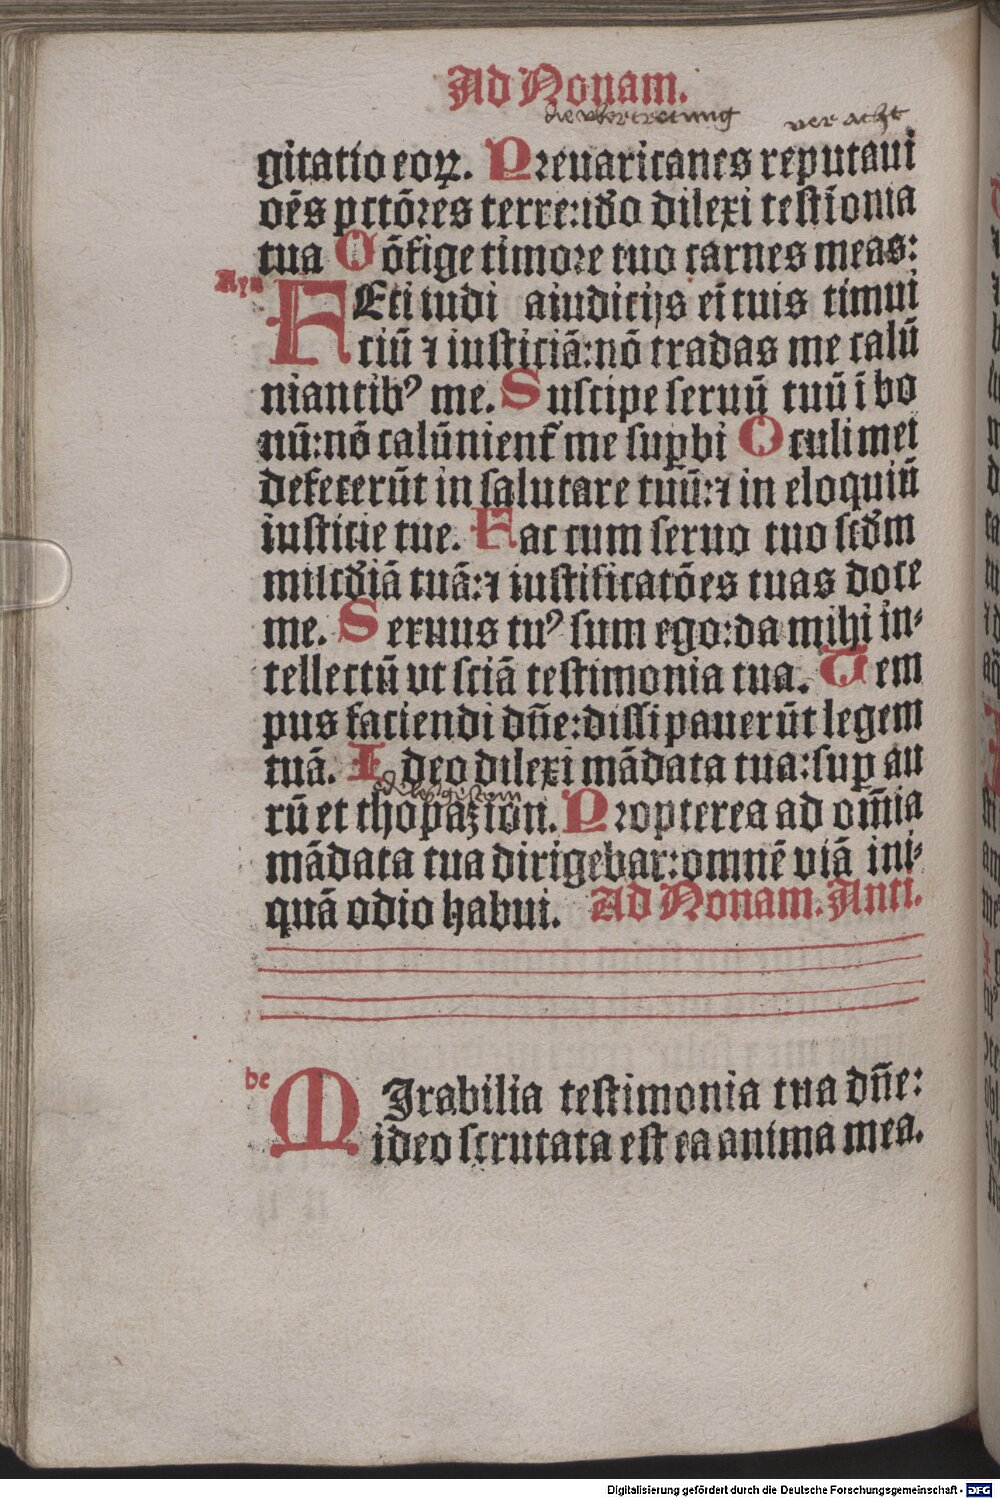 Ad Nonam.
die vbertretung ver acht
gitatio eoꝝ. Preuaricanes reputaui
oēs pctōres terre: iđo dilexi testīonia
tua Cōfige timore tuo carnes meas:
Ayn
FEci iudi aiudicijs eī tuis timui
ciū ⁊ iusticiā: nō tradas me calū
niantibꝰ me. Suscipe seruū tuū ī bo
nū: nō calūnient᷑ me sup̱bi Oculi mei
defecerūt in salutare tuū: ⁊ in eloquiū
iusticie tue. Fac cum seruo tuo scđm
miscđiā tuā: ⁊ iustificatōes tuas doce
me. Seruus tuꝰ sum ego: da mihi in⸗
tellectū vt sciā testimonia tua. Tem
pus faciendi dn̄e: dissipauerūt legem
tuā. Ideo dilexi mādata tua: sup̱ au
rū et thopazion. Propterea ad om̄ia
mādata tua dirigebar: omnē viā ini⸗
quā odio habui. Ad Nonam. Anti.
be
MIrabilia testimonia tua dn̄e:
ideo scrutata est ea anima mea.
Digitalisierung gefördert durch die Deutsche Forschungsgemeinschaft - DFG